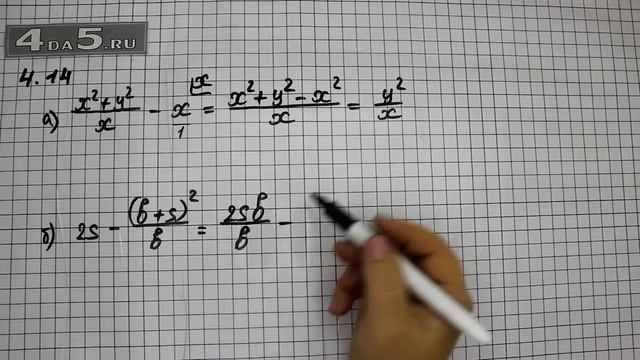 4DA5.RU
4.14
а) (x²+y²)/x − x/1 |x = (x²+y²−x²)/x = y²/x
б) 2s − (b+s)²/b = 2sb/b −